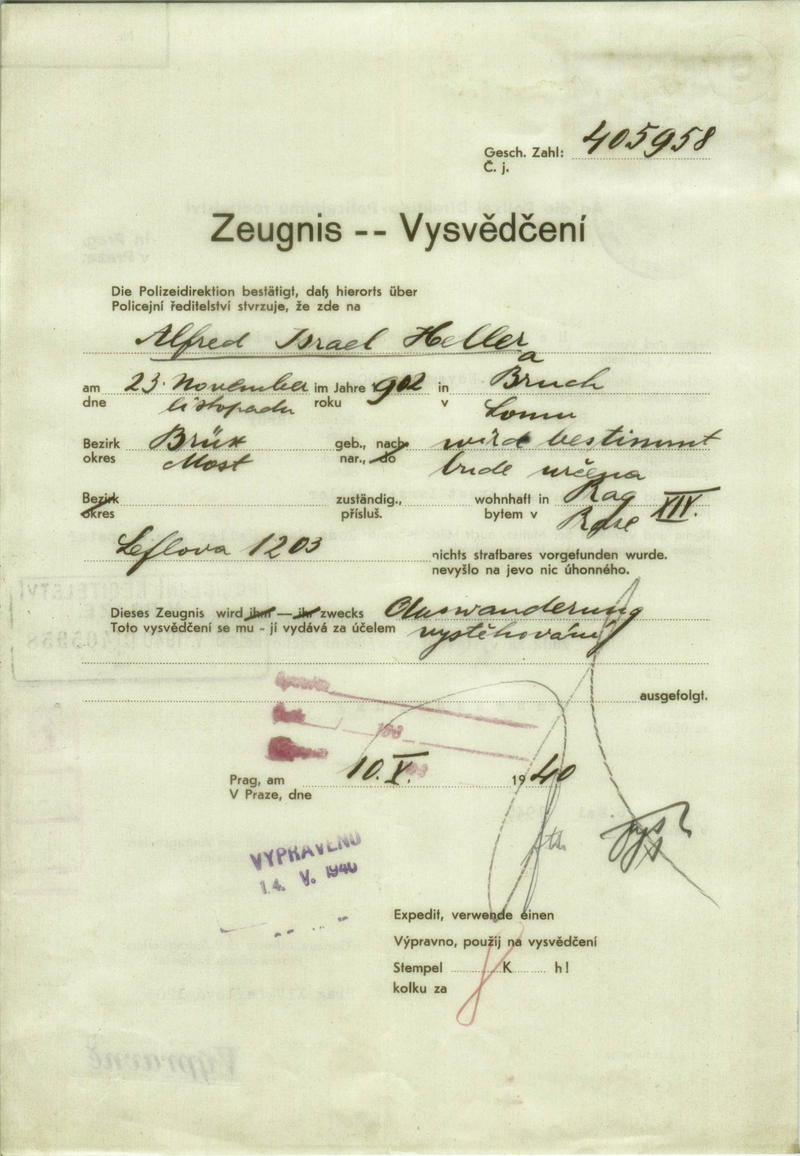 Gesch. Zahl: 405958
Č. j.
Zeugnis -- Vysvědčení
Die Polizeidirektion bestätigt, daß hierorts über
Policejní ředitelství stvrzuje, že zde na
Alfred Israel Heller
a
am 23. November im Jahre 1902 in Bruch
dne listopadu roku v Lomu
Bezirk Brüx geb., nach wird bestimmt
okres Most nar., do bude určena
Bezirk zuständig., wohnhaft in Prag XIV.
okres přísluš. bytem v
1203 nichts strafbares vorgefunden wurde.
nevyšlo na jevo nic úhonného.
Dieses Zeugnis wird ihm — ihr zwecks Auswanderung
Toto vysvědčení se mu - jí vydává za účelem vystěhování
ausgefolgt.
Prag, am 10. V. 1940
V Praze, dne
VYPRAVENO
14. V. 1940
Expedit, verwende einen
Výpravno, použij na vysvědčení
Stempel K h!
kolku za